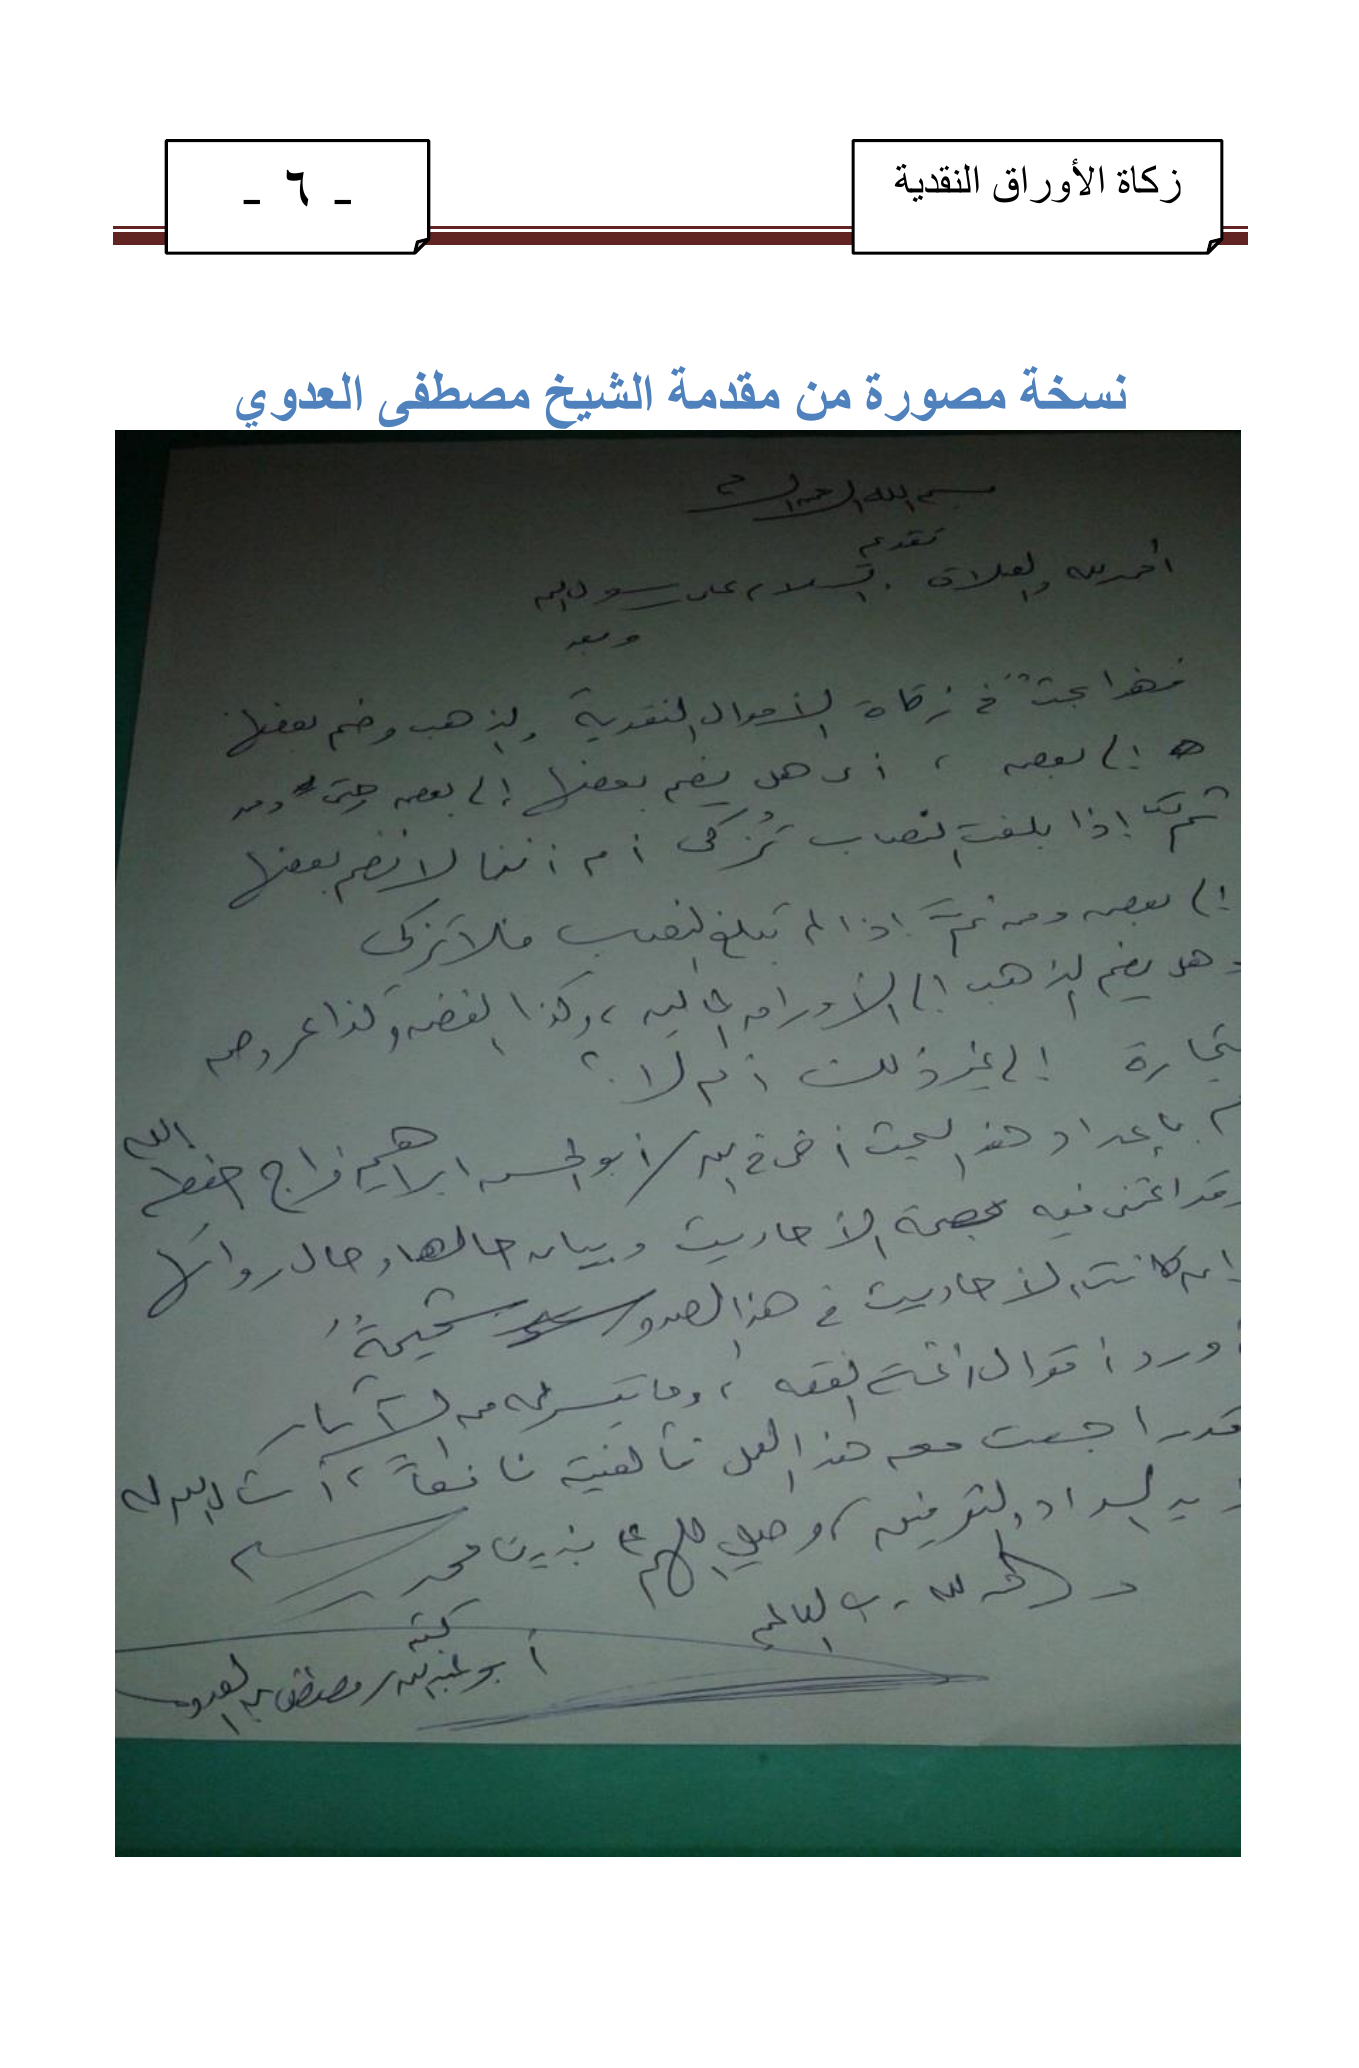 زكاة الأوراق النقدية
- ٦ -
نسخة مصورة من مقدمة الشيخ مصطفى العدوي
بسم الله الرحمن الرحيم
تقديم
الحمد لله والصلاة والسلام على رسول الله
وبعد
فهذا بحث في زكاة الأموال النقدية والذهب وضم بعضها
إلى بعض ، أي هل يضم بعضها إلى بعض حتى ومن
ثم إذا بلغت النصاب تُزكى أم أننا لا نضم بعضها
إلى بعض ومن ثمَّ إذا لم تبلغ النصاب فلا تزكى
وهل يضم الذهب إلى الأوراق المالية ، وكذا الفضة وكذا عروض
تجارة إلى غير ذلك أم لا ؟
بإعداد هذا البحث أخي في الله / أبو الحسن إبراهيم فراج حفظه الله
وقد اعتنى فيه بصحة الأحاديث وبيان حالها وحال رواتها
وإن كانت الأحاديث في هذا الصدد شحيحةٌ
أورد أقوال أئمة الفقه ، وما تيسر له من الآثار
قد راجعت معه هذا العمل فألفيته نافعاً ، أسأل الله له
السداد والتوفيق ، وصلِ اللهم على نبينا محمد وسلم
والحمد لله رب العالمين
كتبه
أبو عبد الله / مصطفى بن العدوي